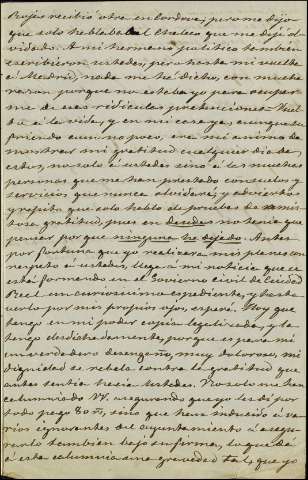 Rojas recibió otra en Cordova, pero me dijo
que solo hablaba del chaleco que me dejé ol-
vidado. A mi hermano político tambien
escribieron ustedes, pero hasta mi vuelta
á Madrid, nada me ha dicho, con mucha
razon, porque no estaba yo para ocupar-
me de esas ridículas pretenciones. Vuel-
to á la vida, y en mi casa ya, aunque su-
friendo aun no poco, era mi ánimo de-
mostrar mi gratitud cualquier dia de
estos, no solo á ustedes sino á las muchas
personas que me han prestado consuelos y
servicios que nunca olvidaré, y advierto
repito que solo hablo de pruebas de amis-
tosa gratitud, pues en deudas no tenia que
pensar por que ninguna he dejado. Antes
por fortuna que yo realizara mis planes con
respeto á ustedes, llega á mi noticia que se
está formando en el Govierno civil de Ciudad
Real un curiosisimo espediente, y hasta
verlo por mis propios ojos, esperé. Hoy que
tengo en mi poder copia legalizada, y la
tengo desdichadamente, porque es para mi
un verdadero desengaño, muy doloroso, mi
dignidad se rebela contra la gratitud que
antes sentia hacia ustedes. No solo me han
calumniado VV. asegurando que yo les di por
todo pago 80 rs, sino que han inducido á va-
rios ignorantes del ayuntamiento á asegu-
rarlo tambien bajo su firma, lo que da
á esta calumnia una gravedad tal, que yo